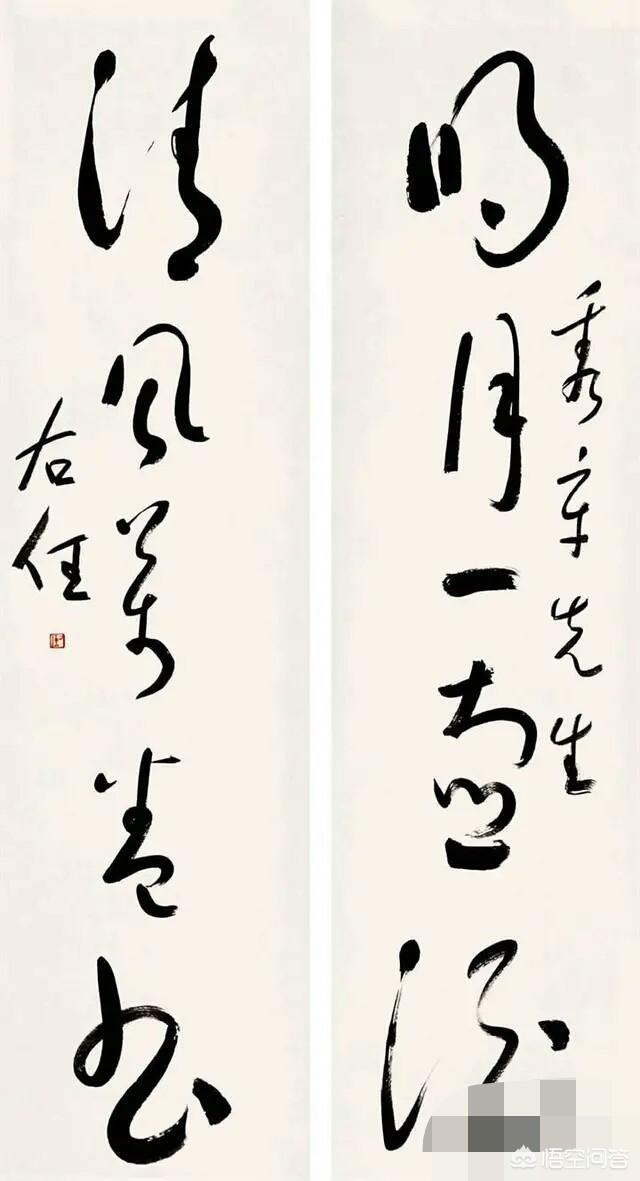 明月一壺酒
秀章先生
清風萬卷書
右任
悟空问答